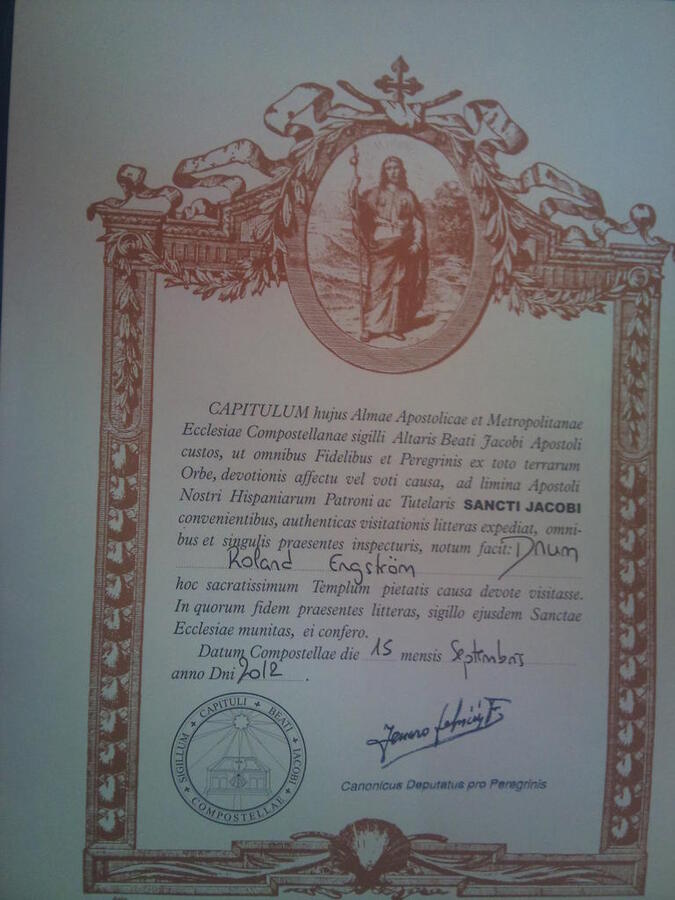 CAPITULUM hujus Almae Apostolicae et Metropolitanae
Ecclesiae Compostellanae sigilli Altaris Beati Jacobi Apostoli
custos, ut omnibus Fidelibus et Peregrinis ex toto terrarum
Orbe, devotionis affectu vel voti causa, ad limina Apostoli
Nostri Hispaniarum Patroni ac Tutelaris SANCTI JACOBI
convenientibus, authenticas visitationis litteras expediat, omni-
bus et singulis praesentes inspecturis, notum facit: Dnum
Roland Engström
hoc sacratissimum Templum pietatis causa devote visitasse.
In quorum fidem praesentes litteras, sigillo ejusdem Sanctae
Ecclesiae munitas, ei confero.
Datum Compostellae die 15 mensis Septembris
anno Dni 2012.
SIGILLUM CAPITULI BEATI IACOBI COMPOSTELLAE
Canonicus Deputatus pro Peregrinis